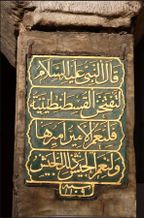 قال النبي عليه السلام
لتفتحن القسطنطينية
فلنعم الامير اميرها
ولنعم الجيش ذلك الجيش